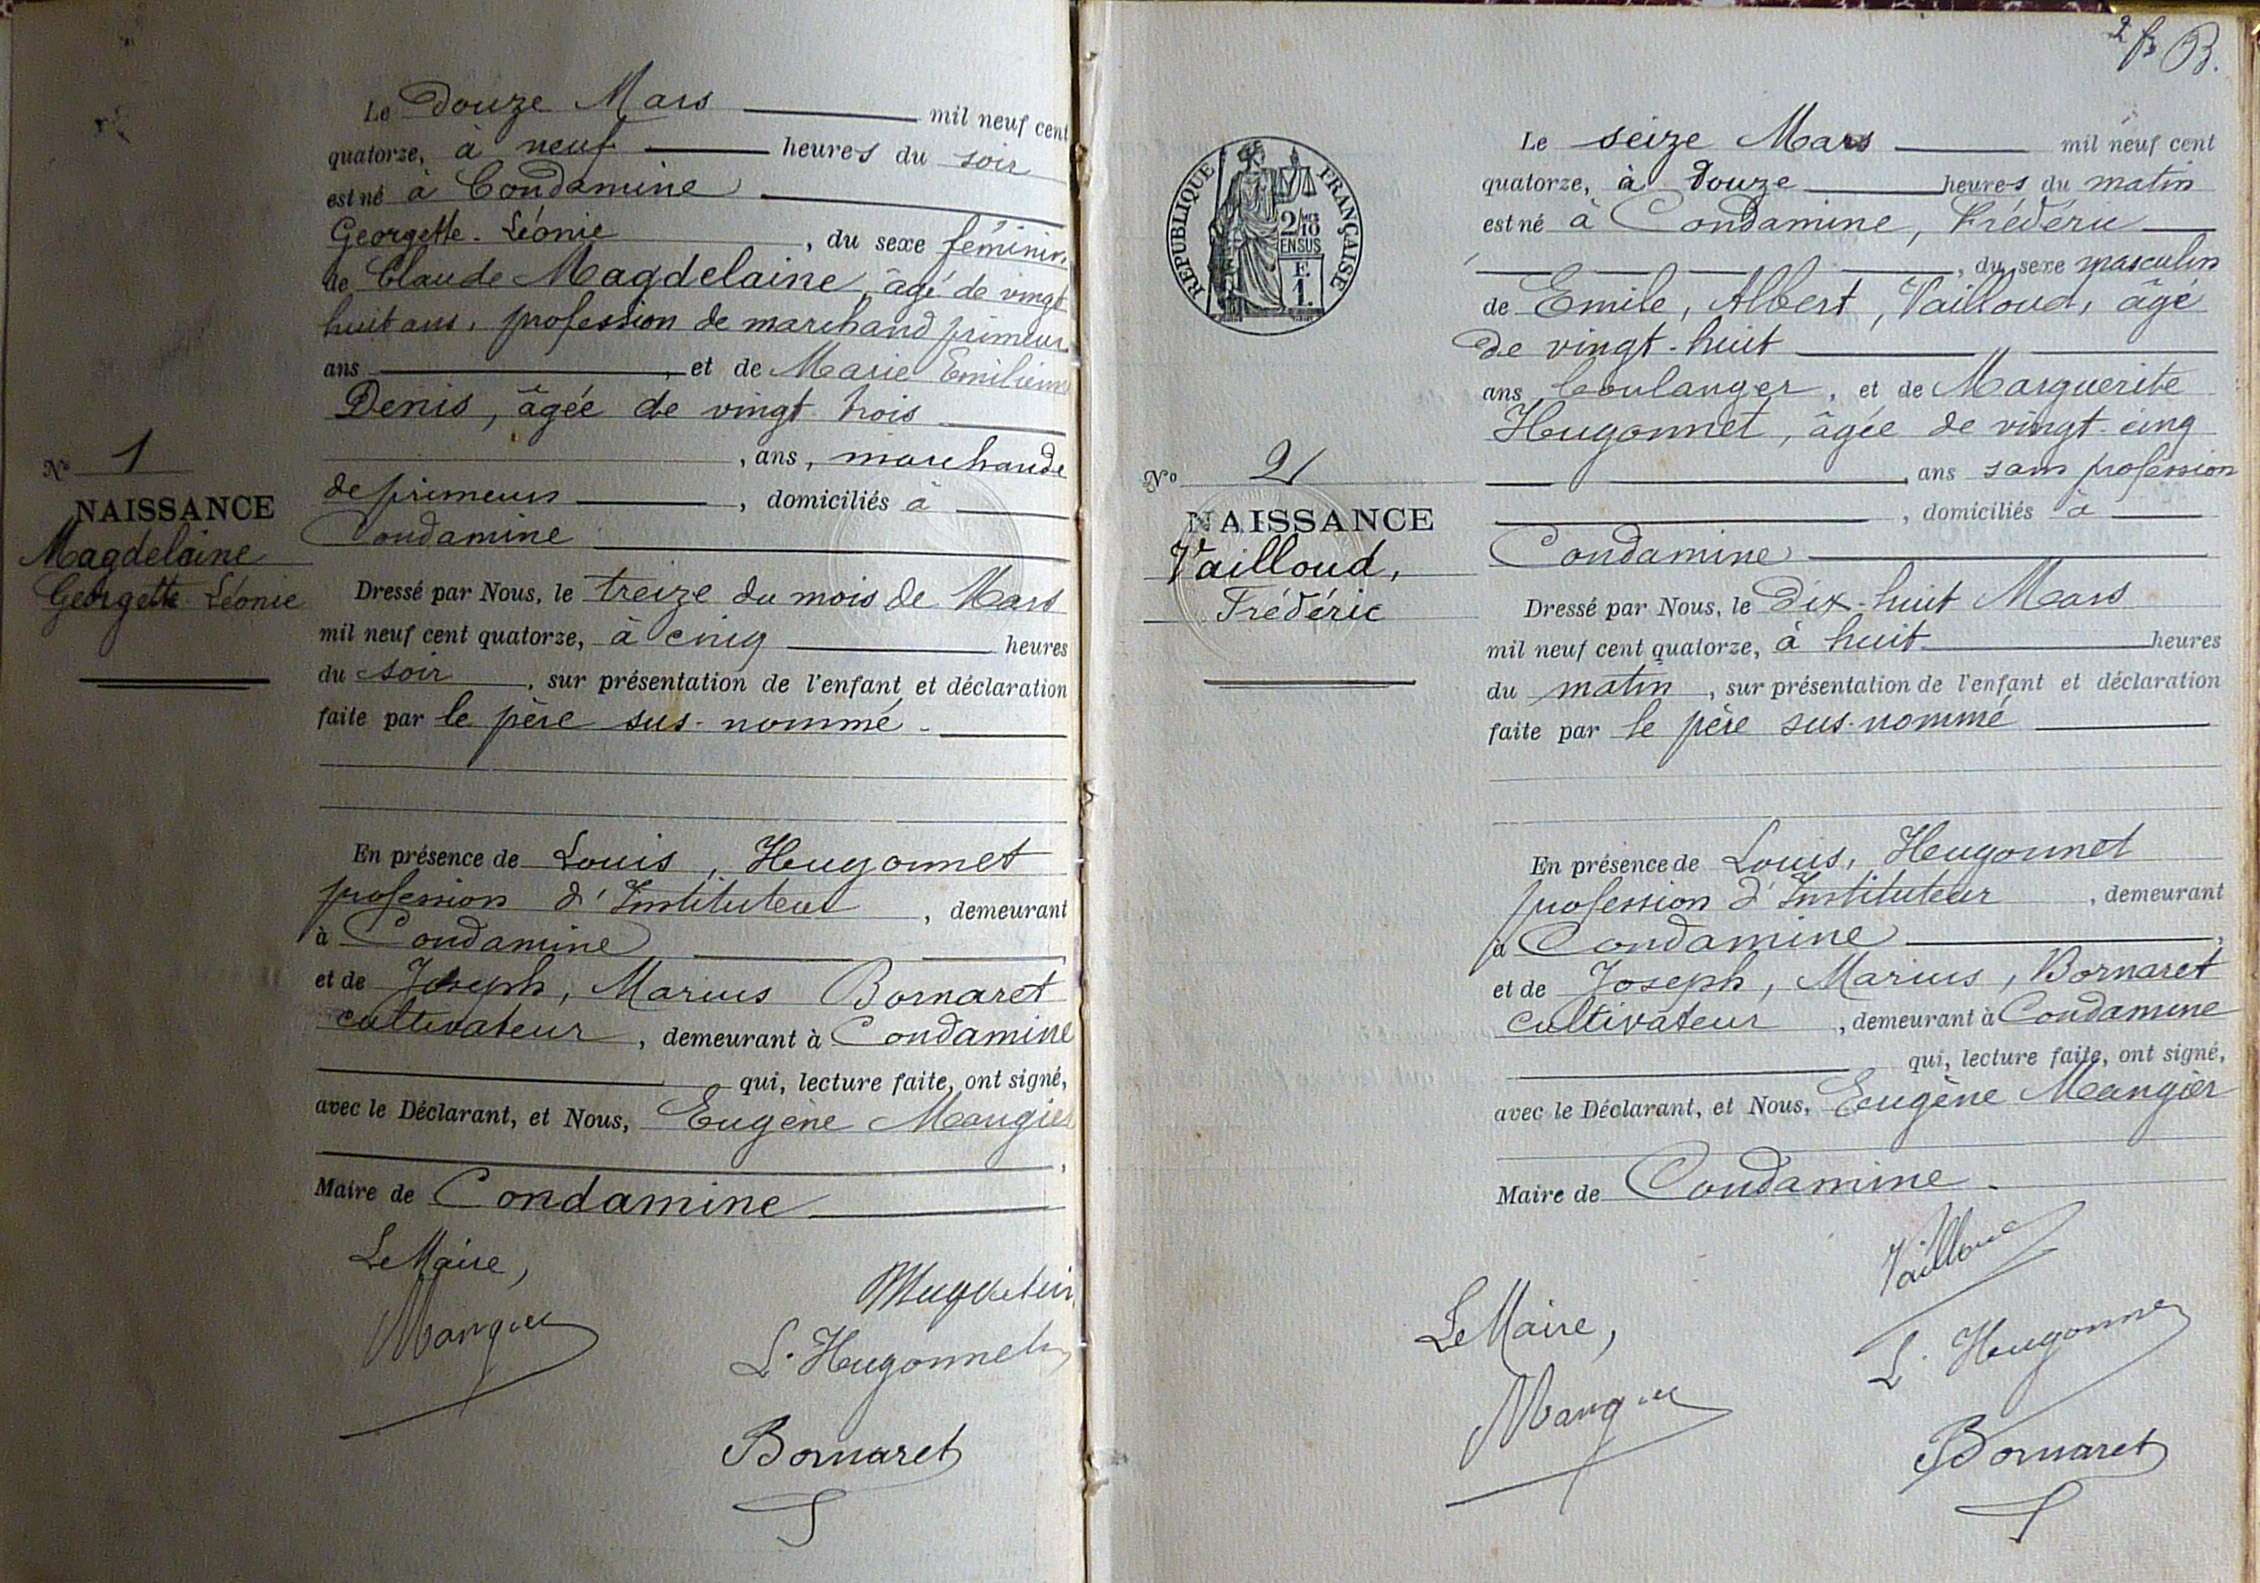 Le Douze Mars mil neuf cent
quatorze, à neuf heures du soir
est né à Condamine
Georgette-Léonie, du sexe féminin
de Claude Magdelaine, âgé de vingt
huit ans, profession de marchand primeur
ans, et de Marie Emilienne
Denis, âgée de vingt trois
, ans, marchande
de primeurs, domiciliés à
Condamine
No 1
NAISSANCE
Magdelaine
Georgette Léonie
Dressé par Nous, le treize du mois de Mars
mil neuf cent quatorze, à cinq heures
du soir, sur présentation de l'enfant et déclaration
faite par le père sus-nommé
En présence de Louis, Hugonnet
profession d'Instituteur, demeurant
à Condamine
et de Joseph, Marius Bornaret
cultivateur, demeurant à Condamine
qui, lecture faite, ont signé,
avec le Déclarant, et Nous, Eugène Mangier
Maire de Condamine
Le Maire,
Mangier
L. Hugonnet
Bornaret
2 B.
RÉPUBLIQUE FRANÇAISE
2/10
EN SUS
F.
1.
Le seize Mars mil neuf cent
quatorze, à Douze heures du matin
est né à Condamine, Frédéric
, du sexe masculin
de Emile, Albert, Vailloud, âgé
de vingt-huit
ans, boulanger, et de Marguerite
Hugonnet, âgée de vingt-cinq
, ans sans profession
, domiciliés à
Condamine
No 2
NAISSANCE
Vailloud,
Frédéric
Dressé par Nous, le Dix-huit Mars
mil neuf cent quatorze, à huit heures
du matin, sur présentation de l'enfant et déclaration
faite par le père sus-nommé
En présence de Louis, Hugonnet
profession d'Instituteur, demeurant
à Condamine,
et de Joseph, Marius, Bornaret
cultivateur, demeurant à Condamine
qui, lecture faite, ont signé,
avec le Déclarant, et Nous, Eugène Mangier
Maire de Condamine.
Vailloud
Le Maire,
L. Hugonnet
Mangier
Bornaret